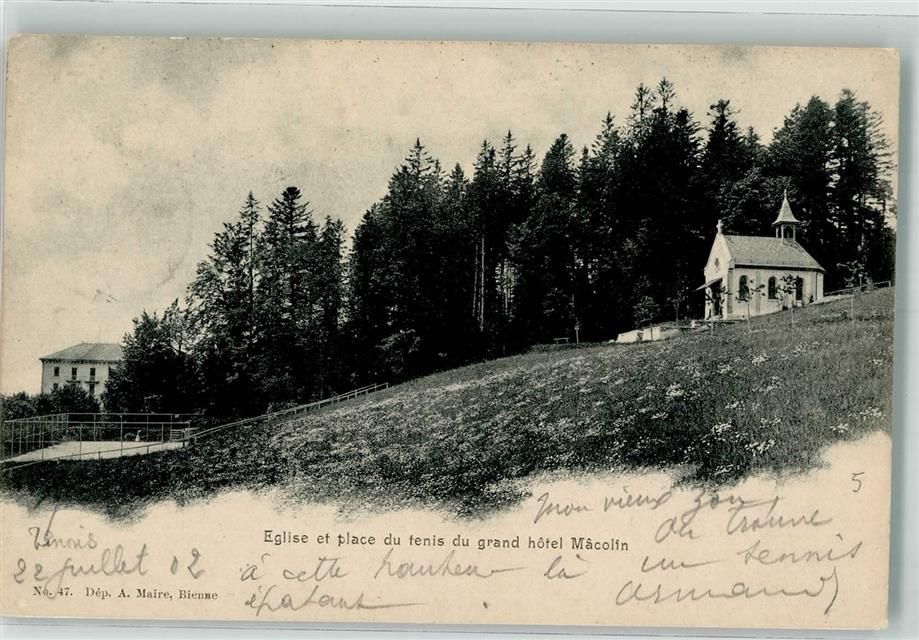 Mon vieux zon
5
Eglise et place du tenis du grand hôtel Mâcolin
on trouve
Tennis
un tennis
22 juillet 02
à cette hauteur là
Armand
No. 47. Dép. A. Maire, Bienne
épatant